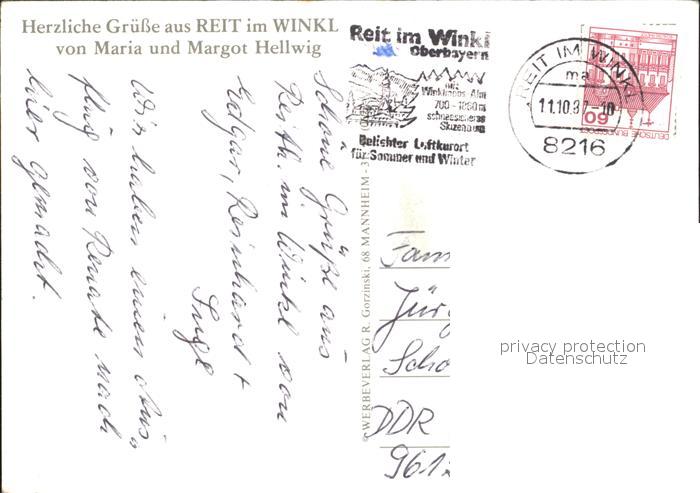 Herzliche Grüße aus REIT im WINKL
von Maria und Margot Hellwig
Reit im Winkl
Oberbayern
mit
Winklmoos Alm
700-1860m
schneesicheres
Skizentrum
Beliebter Luftkurort
für Sommer und Winter
REIT IM WINKL
ma
11.10.87-10
8216
60
DEUTSCHE BUNDESPOST
Schöne Grüße aus
Reith im Winkel von
Edgar, Reinhard +
Inge
Wir haben einen Aus„
flug von Renate nach
hier gemacht.
©WERBEVERLAG R. Gorzinski, 68 MANNHEIM - 3
Fam
Jür
Scho
DDR
961
privacy protection
Datenschutz